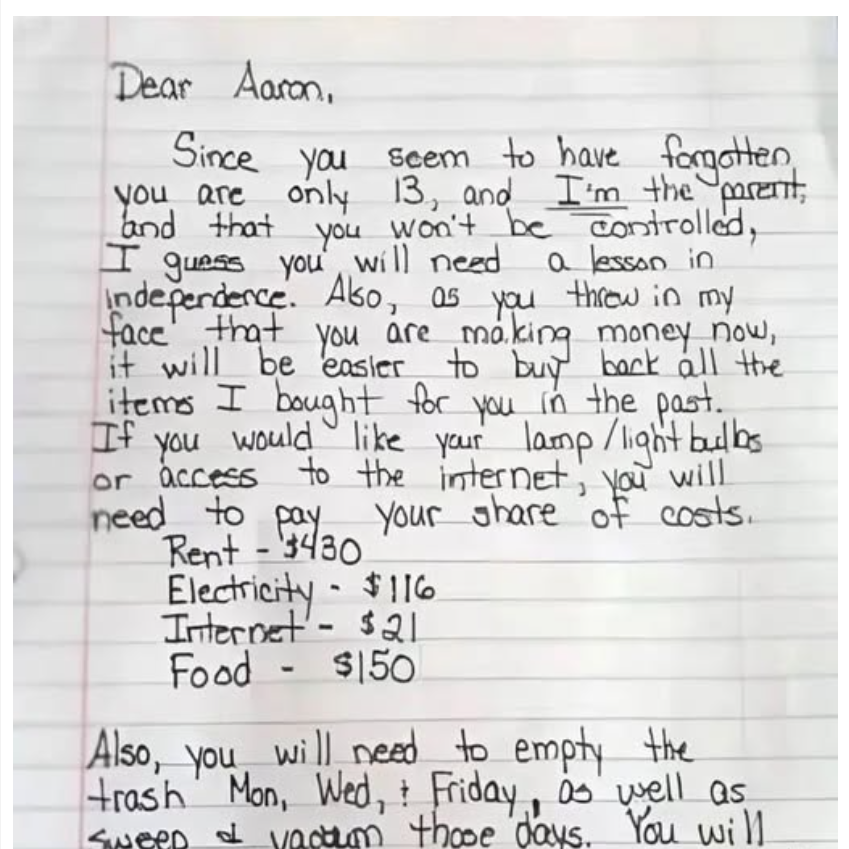 Dear Aaron,
Since you seem to have forgotten
you are only 13, and I'm the parent,
and that you won't be controlled,
I guess you will need a lesson in
independence. Also, as you threw in my
face that you are making money now,
it will be easier to buy back all the
items I bought for you in the past.
If you would like your lamp/lightbulbs
or access to the internet, you will
need to pay your share of costs.
Rent - $430
Electricity - $116
Internet - $21
Food - $150
Also, you will need to empty the
trash Mon, Wed, + Friday, as well as
sweep & vacuum those days. You will